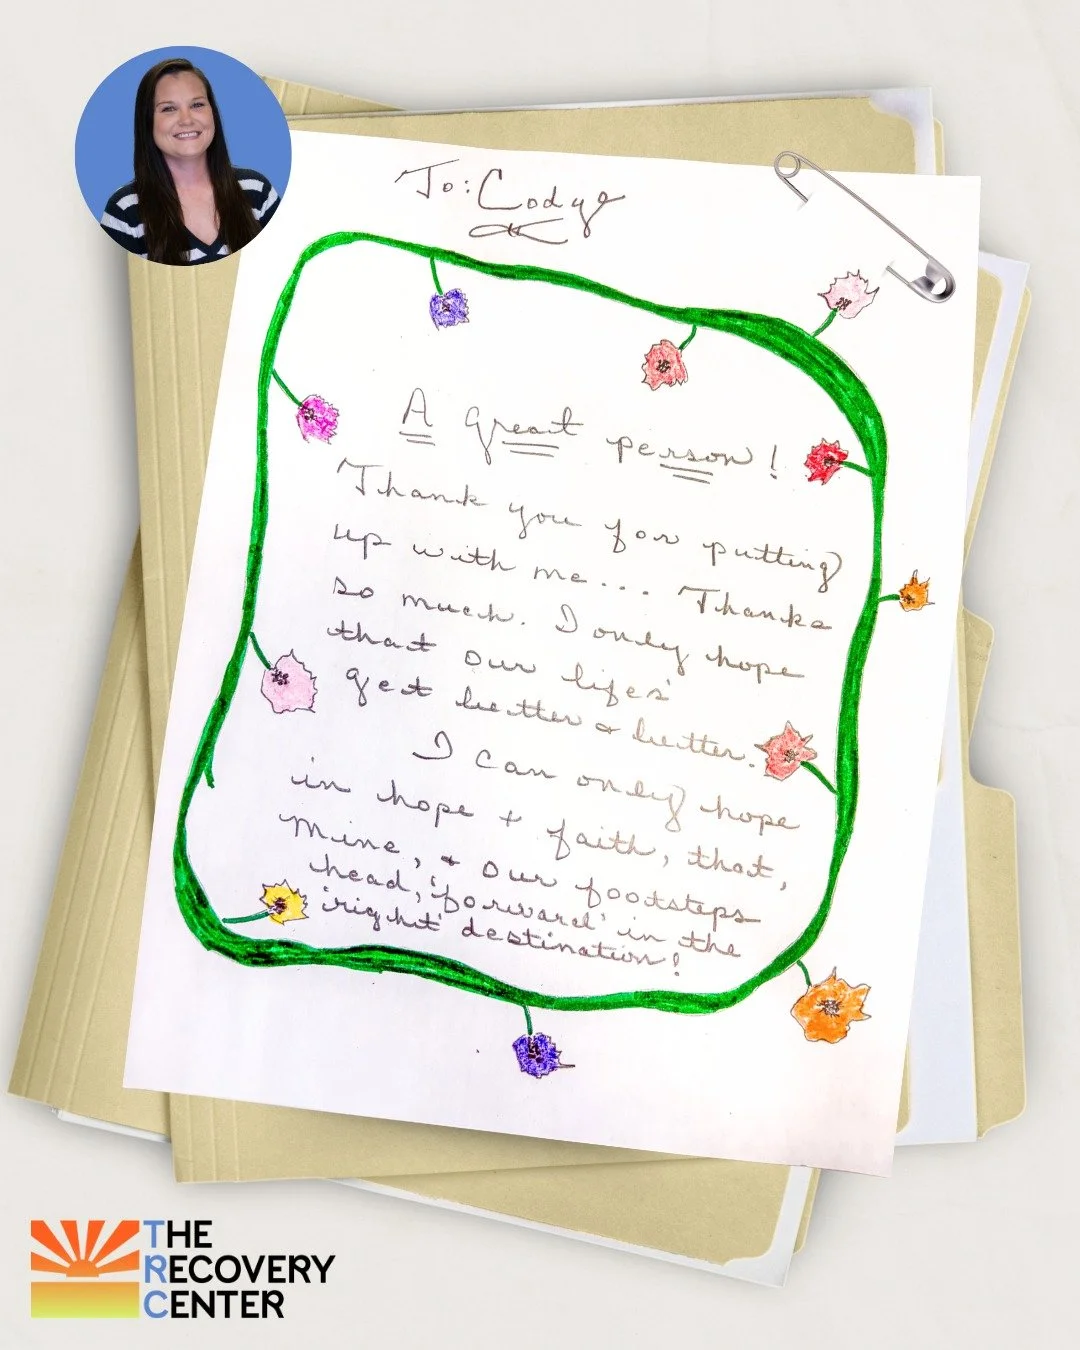 To: Codye
A great person!
Thank you for putting
up with me... Thanks
so much. I only hope
that our lifes'
get better & better.
I can only hope
in hope + faith, that,
mine, & our footsteps
head, 'forward' in the
'right' destination!
THE
RECOVERY
CENTER